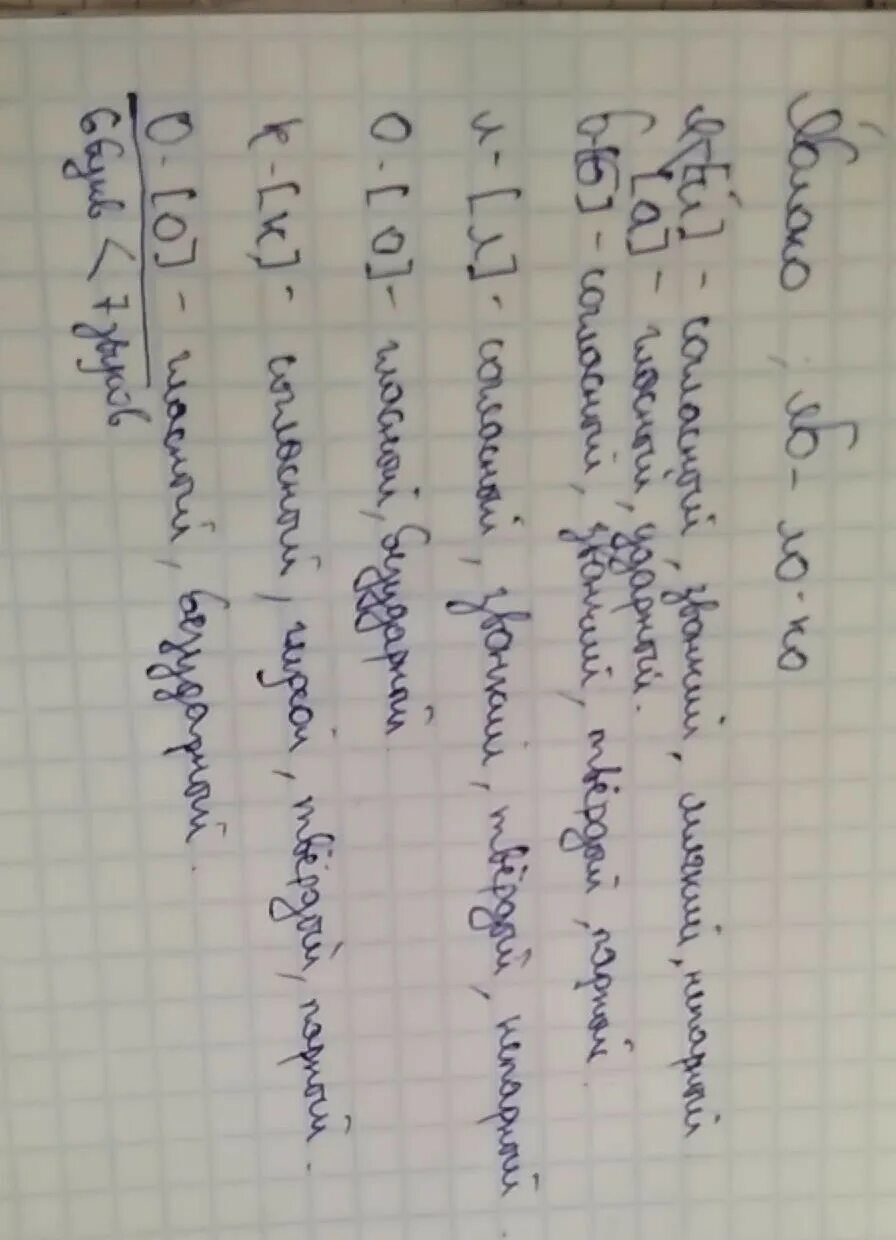 Яблоко, яб-ло-ко
Я-[й] - согласный, звонкий, мягкий, непарный
[а] - гласный, ударный.
б-[б] - согласный, звонкий, твёрдый, парный.
л-[л] - согласный, звонкий, твёрдый, непарный.
о-[о] - гласный, безударный
к-[к] - согласный, глухой, твёрдый, парный.
о-[о] - гласный, безударный.
6 букв < 7 звуков